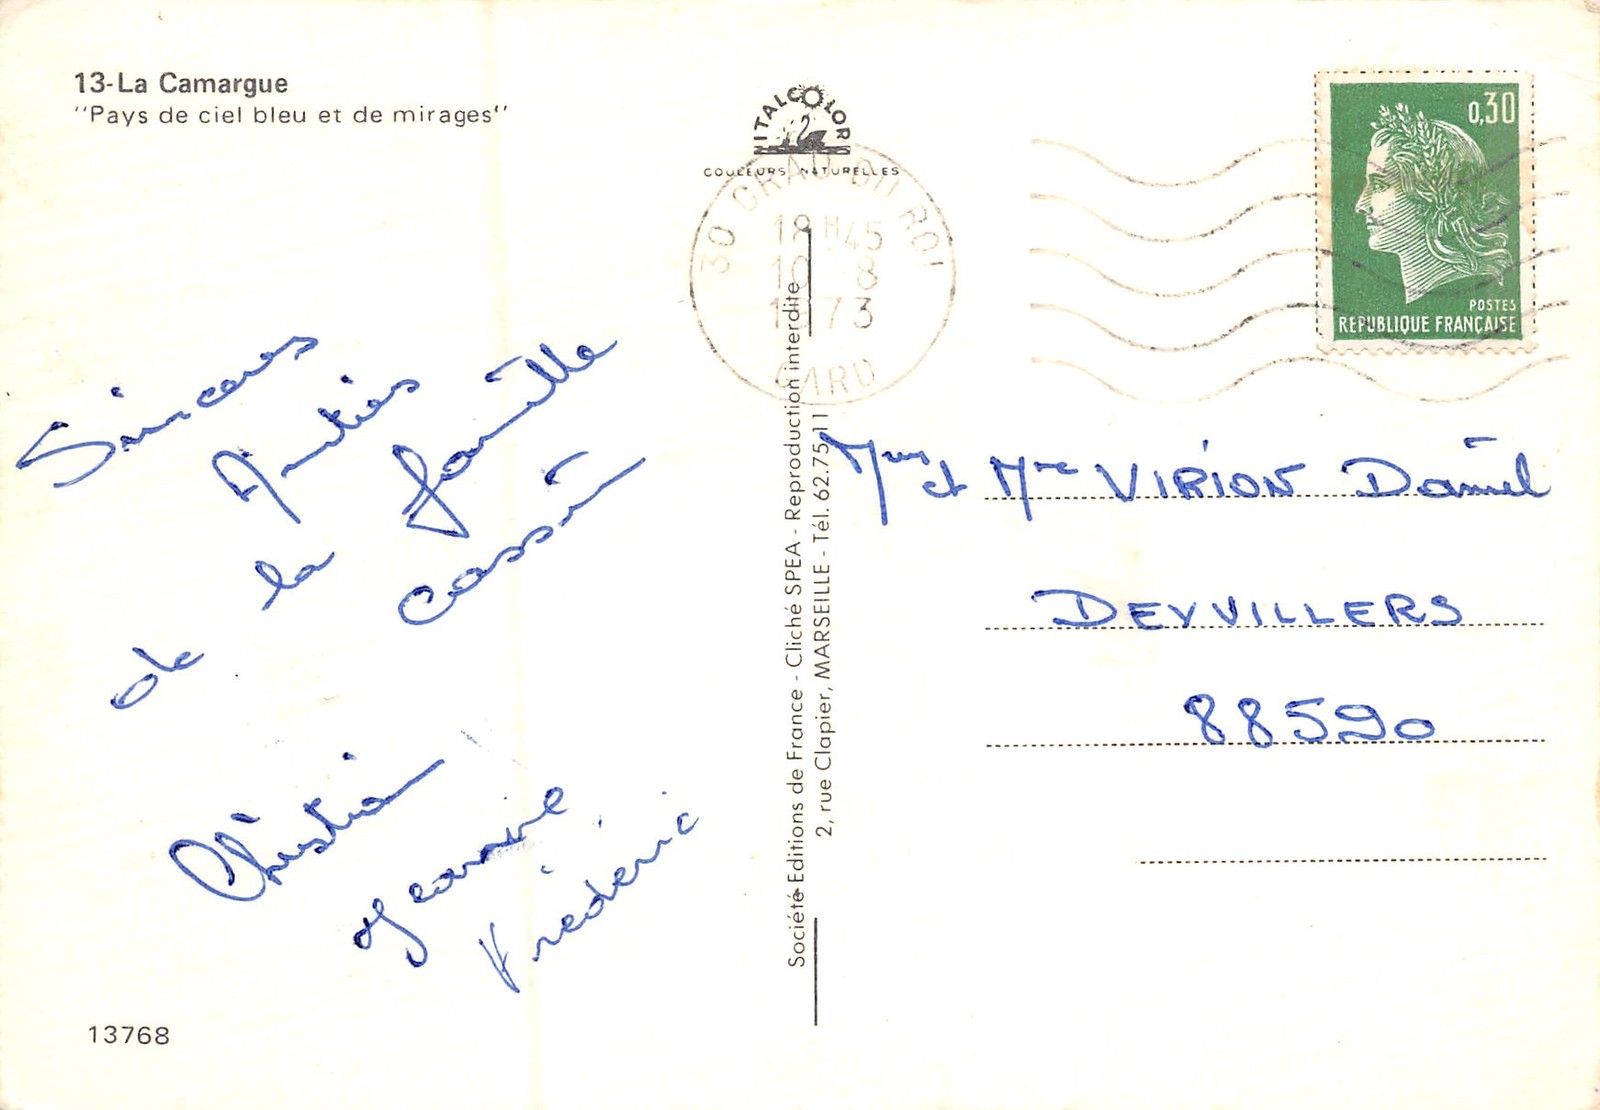 13-La Camargue
"Pays de ciel bleu et de mirages"
ITALCOLOR
COULEURS NATURELLES
30 GRAU DU ROI
18H45
10 8
1973
GARD
0,30
POSTES
REPUBLIQUE FRANÇAISE
Sincères
Amitiés
de la famille
Cassin
Christian
Jeannine
Frédéric
13768
Société Editions de France - Cliché SPEA - Reproduction interdite
2, rue Clapier, MARSEILLE - Tél. 62.75.11
Mr et Mme VIRION Daniel
DEYVILLERS
88520